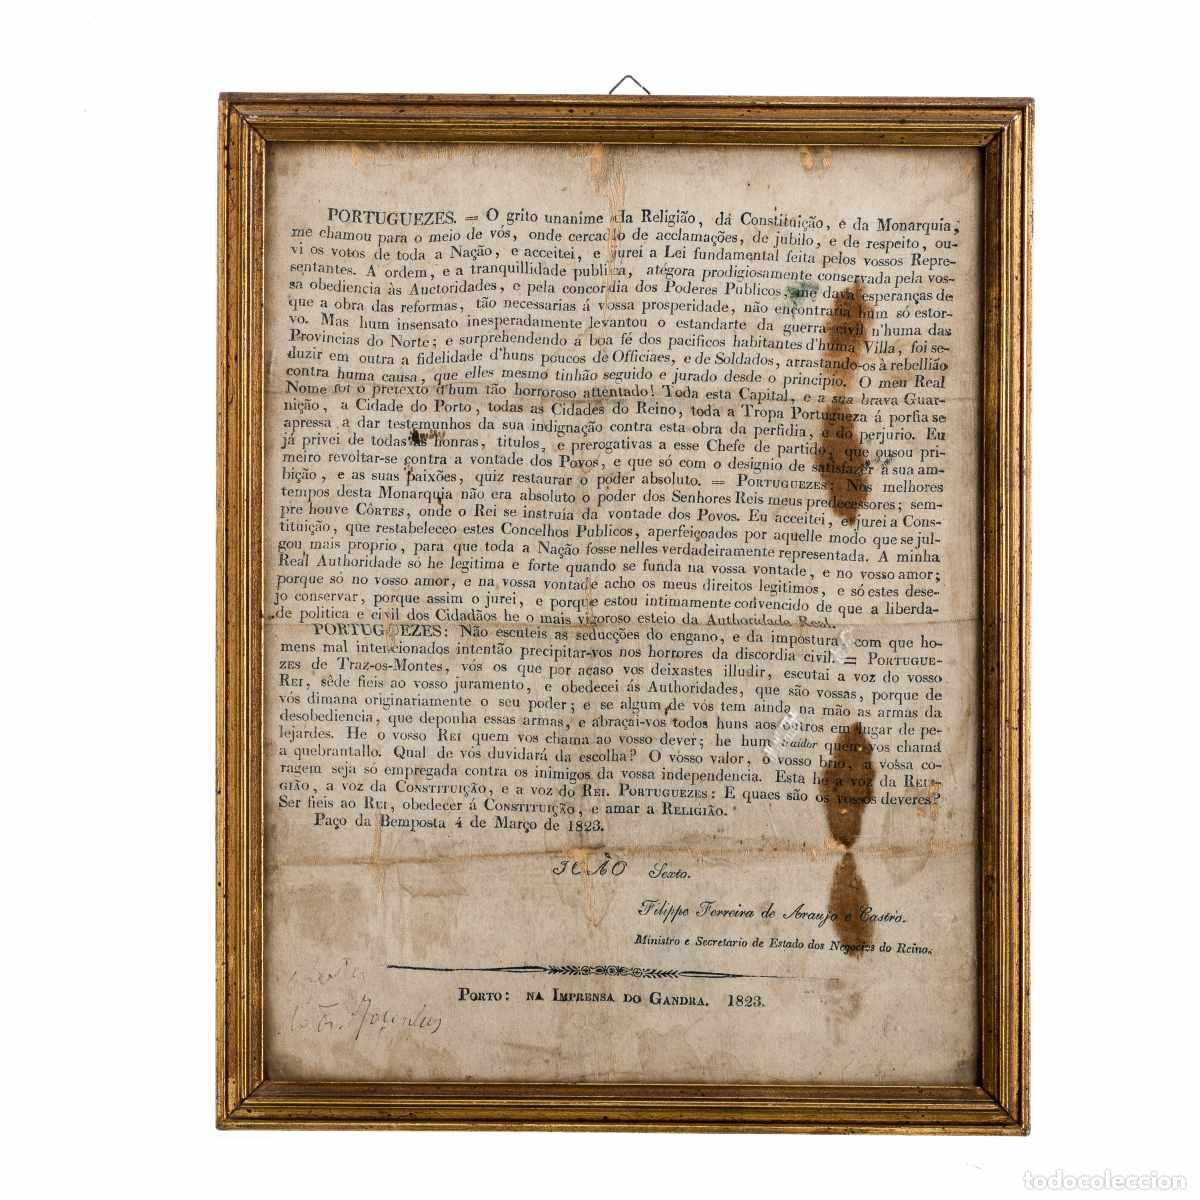 PORTUGUEZES. = O grito unanime da Religião, dá Constituição, e da Monarquia,
me chamou para o meio de vós, onde cercado de acclamações, de jubilo, e de respeito, ou-
vi os votos de toda a Nação, e acceitei, e jurei a Lei fundamental feita pelos vossos Repre-
sentantes. A ordem, e a tranquillidade publica, atégora prodigiosamente conservada pela vos-
sa obediencia às Auctoridades, e pela concordia dos Poderes Públicos, me dava esperanças de
que a obra das reformas, tão necessarias á vossa prosperidade, não encontraria hum só estor-
vo. Mas hum insensato inesperadamente levantou o estandarte da guerra civil n'huma das
Provincias do Norte; e surprehendendo a boa fé dos pacificos habitantes d'huma Villa, foi se-
duzir em outra a fidelidade d'huns poucos de Officiaes, e de Soldados, arrastando-os à rebellião
contra huma causa, que elles mesmo tinhão seguido e jurado desde o principio. O meu Real
Nome foi o pretexto d'hum tão horroroso attentado! Toda esta Capital, e a sua brava Guar-
nição, a Cidade do Porto, todas as Cidades do Reino, toda a Tropa Portugueza á porfia se
apressa a dar testemunhos da sua indignação contra esta obra da perfidia, e do perjurio. Eu
já privei de todas as honras, titulos, e prerogativas a esse Chefe de partido, que ousou pri-
meiro revoltar-se contra a vontade dos Povos, e que só com o designio de satisfazer a sua am-
bição, e as suas paixões, quiz restaurar o poder absoluto. = PORTUGUEZES: Nos melhores
tempos desta Monarquia não era absoluto o poder dos Senhores Reis meus predecessores; sem-
pre houve CÔRTES, onde o Rei se instruía da vontade dos Povos. Eu acceitei, e jurei a Cons-
tituição, que restabeleceo estes Concelhos Publicos, aperfeiçoados por aquelle modo que se jul-
gou mais proprio, para que toda a Nação fosse nelles verdadeiramente representada. A minha
Real Authoridade só he legitima e forte quando se funda na vossa vontade, e no vosso amor;
porque só no vosso amor, e na vossa vontade acho os meus direitos legitimos, e só estes dese-
jo conservar, porque assim o jurei, e porque estou intimamente convencido de que a liberda-
de politica e civil dos Cidadãos he o mais vigoroso esteio da Authoridade Real.
PORTUGUEZES: Não escuteis as seducções do engano, e da impostura, com que ho-
mens mal intencionados intentão precipitar-vos nos horrores da discordia civil. = PORTUGUE-
ZES de Traz-os-Montes, vós os que por acaso vos deixastes illudir, escutai a voz do vosso
REI, sêde fieis ao vosso juramento, e obedecei ás Authoridades, que são vossas, porque de
vós dimana originariamente o seu poder; e se algum de vós tem ainda na mão as armas da
desobediencia, que deponha essas armas, e abraçai-vos todos huns aos outros em lugar de pe-
lejardes. He o vosso REI quem vos chama ao vosso dever; he hum traidor quem vos chamá
a quebrantallo. Qual de vós duvidará da escolha? O vosso valor, o vosso brio, a vossa co-
ragem seja só empregada contra os inimigos da vossa independencia. Esta he a voz da RELI-
GIÃO, a voz da CONSTITUIÇÃO, e a voz do REI. PORTUGUEZES: E quaes são os vossos deveres?
Ser fieis ao REI, obedecer á CONSTITUIÇÃO, e amar a RELIGIÃO.
Paço da Bemposta 4 de Março de 1823.
JOÃO Sexto.
Filippe Ferreira de Araujo e Castro.
Ministro e Secretario de Estado dos Negocios do Reino.
PORTO: NA IMPRENSA DO GANDRA. 1823.
todocoleccion